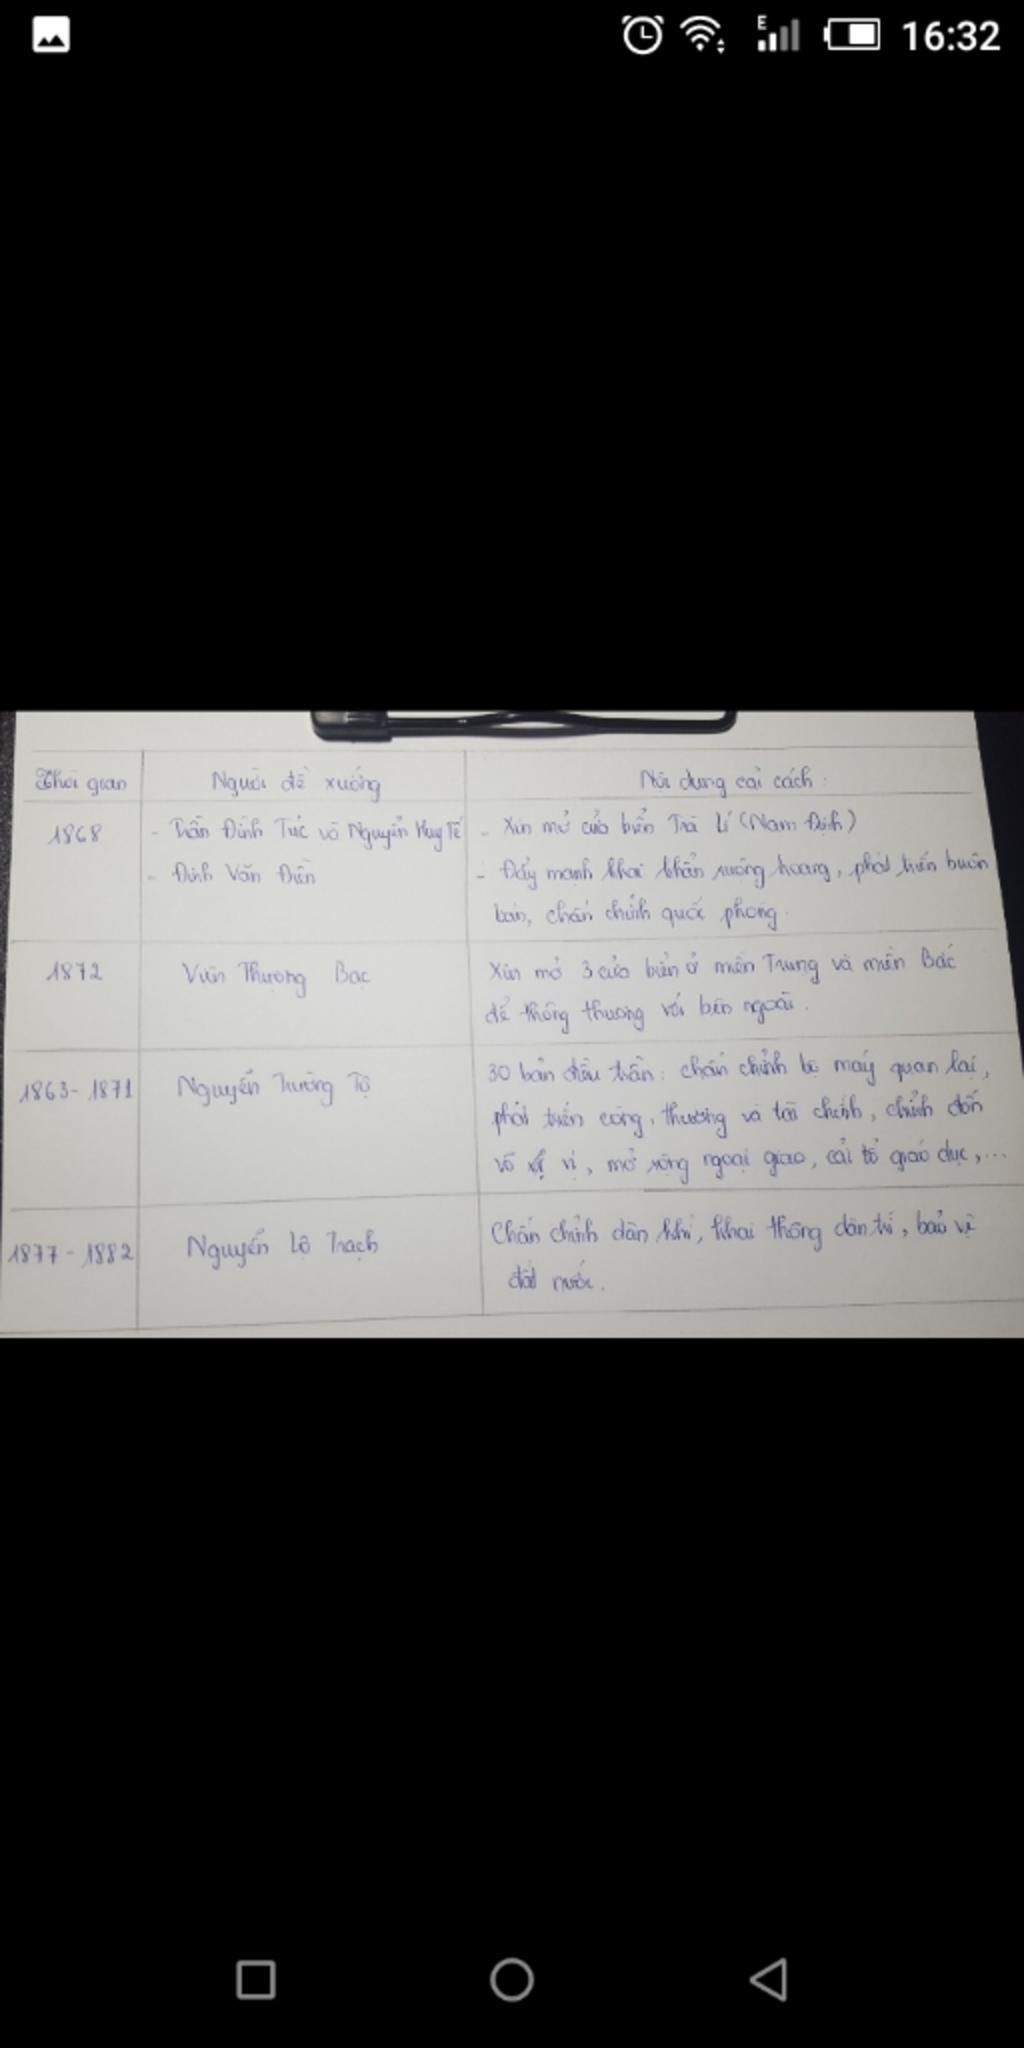 E 16:32
Thời gian
Người đề xướng
Nội dung cải cách :
1868
- Trần Đình Túc và Nguyễn Huy Tế
- Đinh Văn Điền
- Xin mở cửa biển Trà Lí (Nam Định)
- Đẩy mạnh khai khẩn ruộng hoang, phát triển buôn
bán, chấn chỉnh quốc phòng.
1872
Viện Thương Bạc
Xin mở 3 cửa biển ở miền Trung và miền Bắc
để thông thương với bên ngoài.
1863 - 1871
Nguyễn Trường Tộ
30 bản điều trần : chấn chỉnh bộ máy quan lại,
phát triển công, thương và tài chính, chỉnh đốn
võ vị, mở rộng ngoại giao, cải tổ giáo dục,...
1877 - 1882
Nguyễn Lộ Trạch
Chấn chỉnh dân khí, khai thông dân trí, bảo vệ
đất nước.